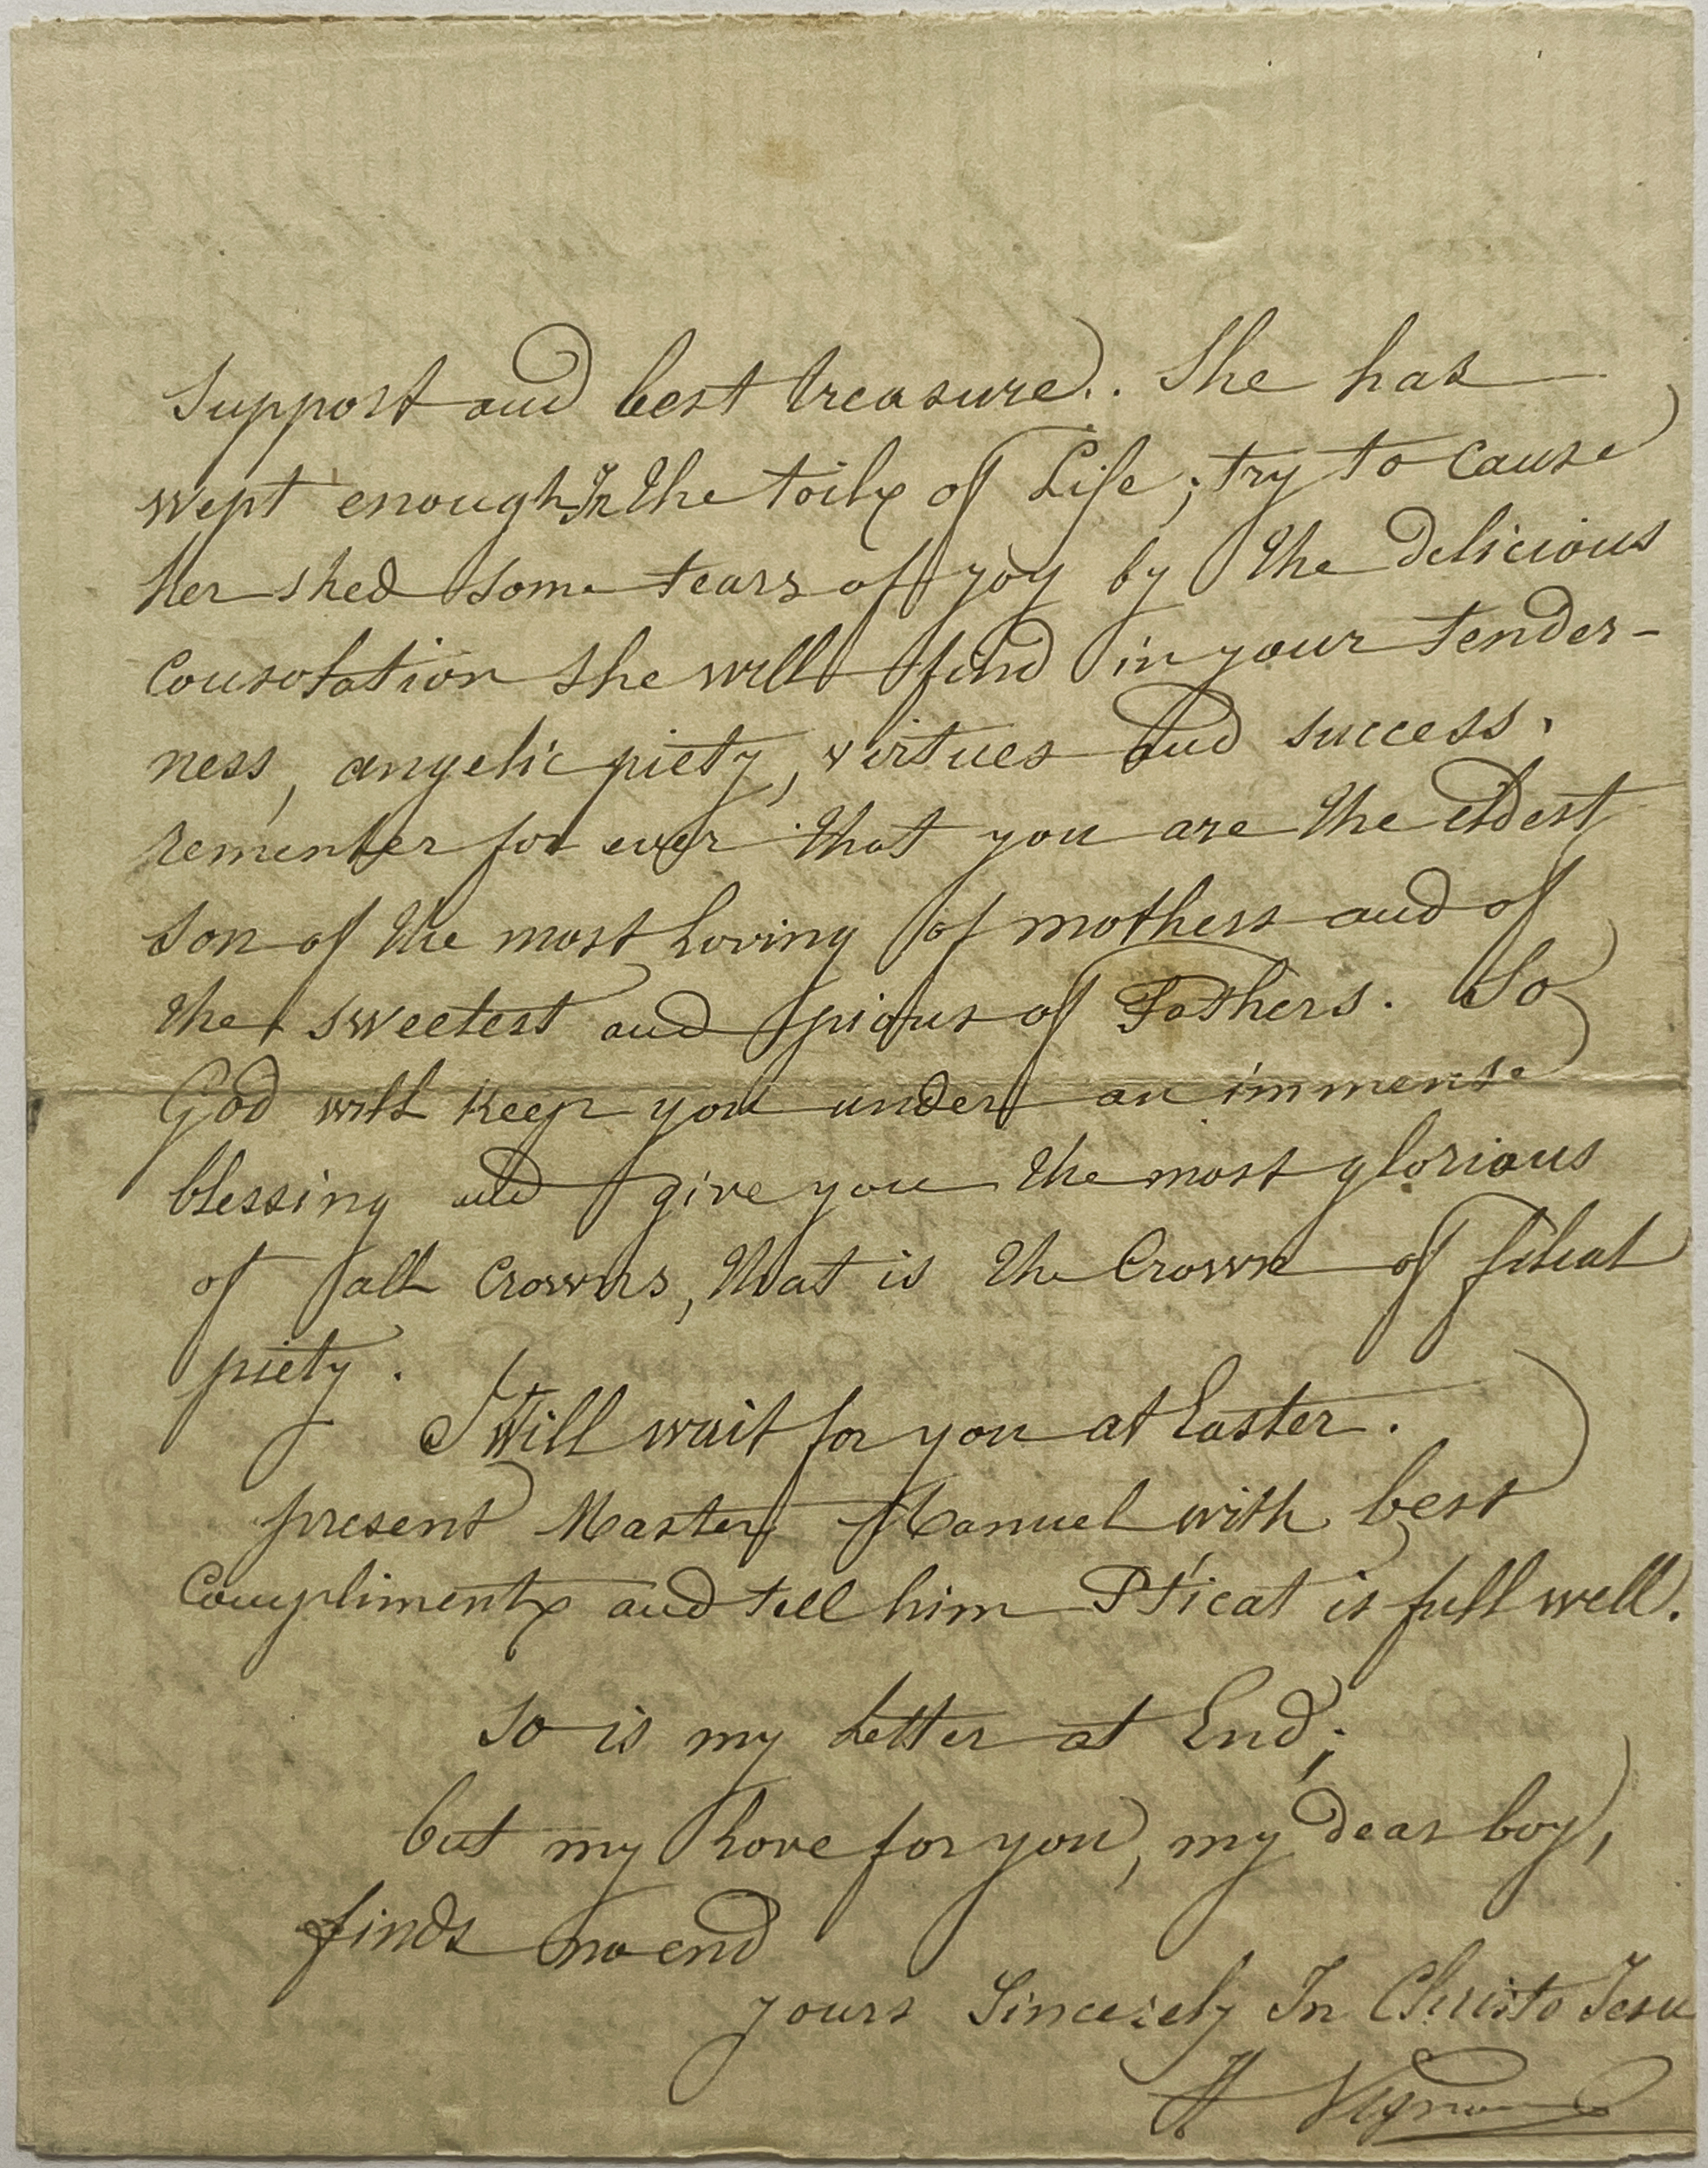 Support and best treasure. She has
wept enough In the toils of Life; try to cause
her shed some tears of joy by the delicious
Consolation she will find in your tender-
ness, angelic piety, virtues and success.
remember for ever that you are the eldest
son of the most Loving of mothers and of
the sweetest and pious of Fathers. So
God will keep you under an immense
blessing and give you the most glorious
of all Crowns, that is the Crown of filial
piety.
I Will wait for you at Easter.
present Master Manuel with best
Compliments and tell him is full well.
So is my Letter at End;
but my Love for you, my dear boy,
finds no end
yours Sincerely In Christo Jesu